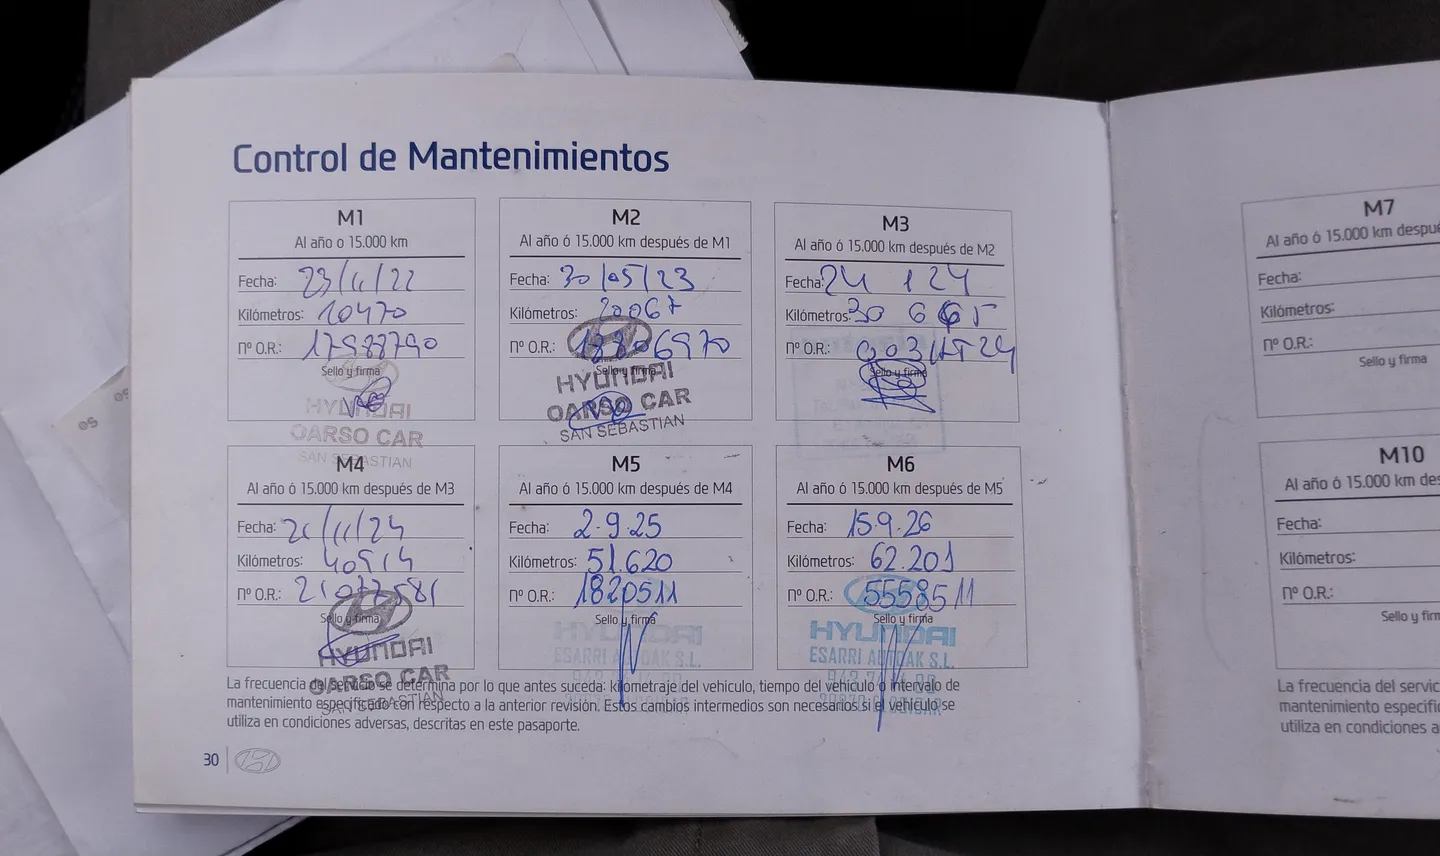 Control de Mantenimientos
M1
Al año o 15.000 km
Fecha: 23/11/22
Kilómetros: 10470
nº O.R.: 17988790
Sello y firma
HYUNDAI
OARSO CAR
SAN SEBASTIAN
M2
Al año ó 15.000 km después de M1
Fecha: 30/05/23
Kilómetros: 20067
nº O.R.: 18806970
Sello y firma
HYUNDAI
OARSO CAR
SAN SEBASTIAN
M3
Al año ó 15.000 km después de M2
Fecha: 24 1 24
Kilómetros: 30 665
nº O.R.:
Sello y firma
M4
Al año ó 15.000 km después de M3
Fecha: 21/11/24
Kilómetros: 40514
nº O.R.: 21077581
Sello y firma
HYUNDAI
OARSO CAR
SAN SEBASTIAN
M5
Al año ó 15.000 km después de M4
Fecha: 2.9.25
Kilómetros: 51.620
nº O.R.: 1820511
Sello y firma
HYUNDAI
ESARRI AUTOAK S.L.
M6
Al año ó 15.000 km después de M5
Fecha: 15.9.26
Kilómetros: 62.201
nº O.R.: 5558511
Sello y firma
HYUNDAI
ESARRI AUTOAK S.L.
La frecuencia del servicio se determina por lo que antes suceda: kilometraje del vehículo, tiempo del vehículo o intervalo de
mantenimiento especificado con respecto a la anterior revisión. Estos cambios intermedios son necesarios si el vehículo se
utiliza en condiciones adversas, descritas en este pasaporte.
30
M7
Al año ó 15.000 km
Fecha:
Kilómetros:
nº O.R.:
Sello y firma
M10
Al año ó 15.000 km
Fecha:
Kilómetros:
nº O.R.:
Sello y
La frecuencia del
mantenimiento
utiliza en condiciones